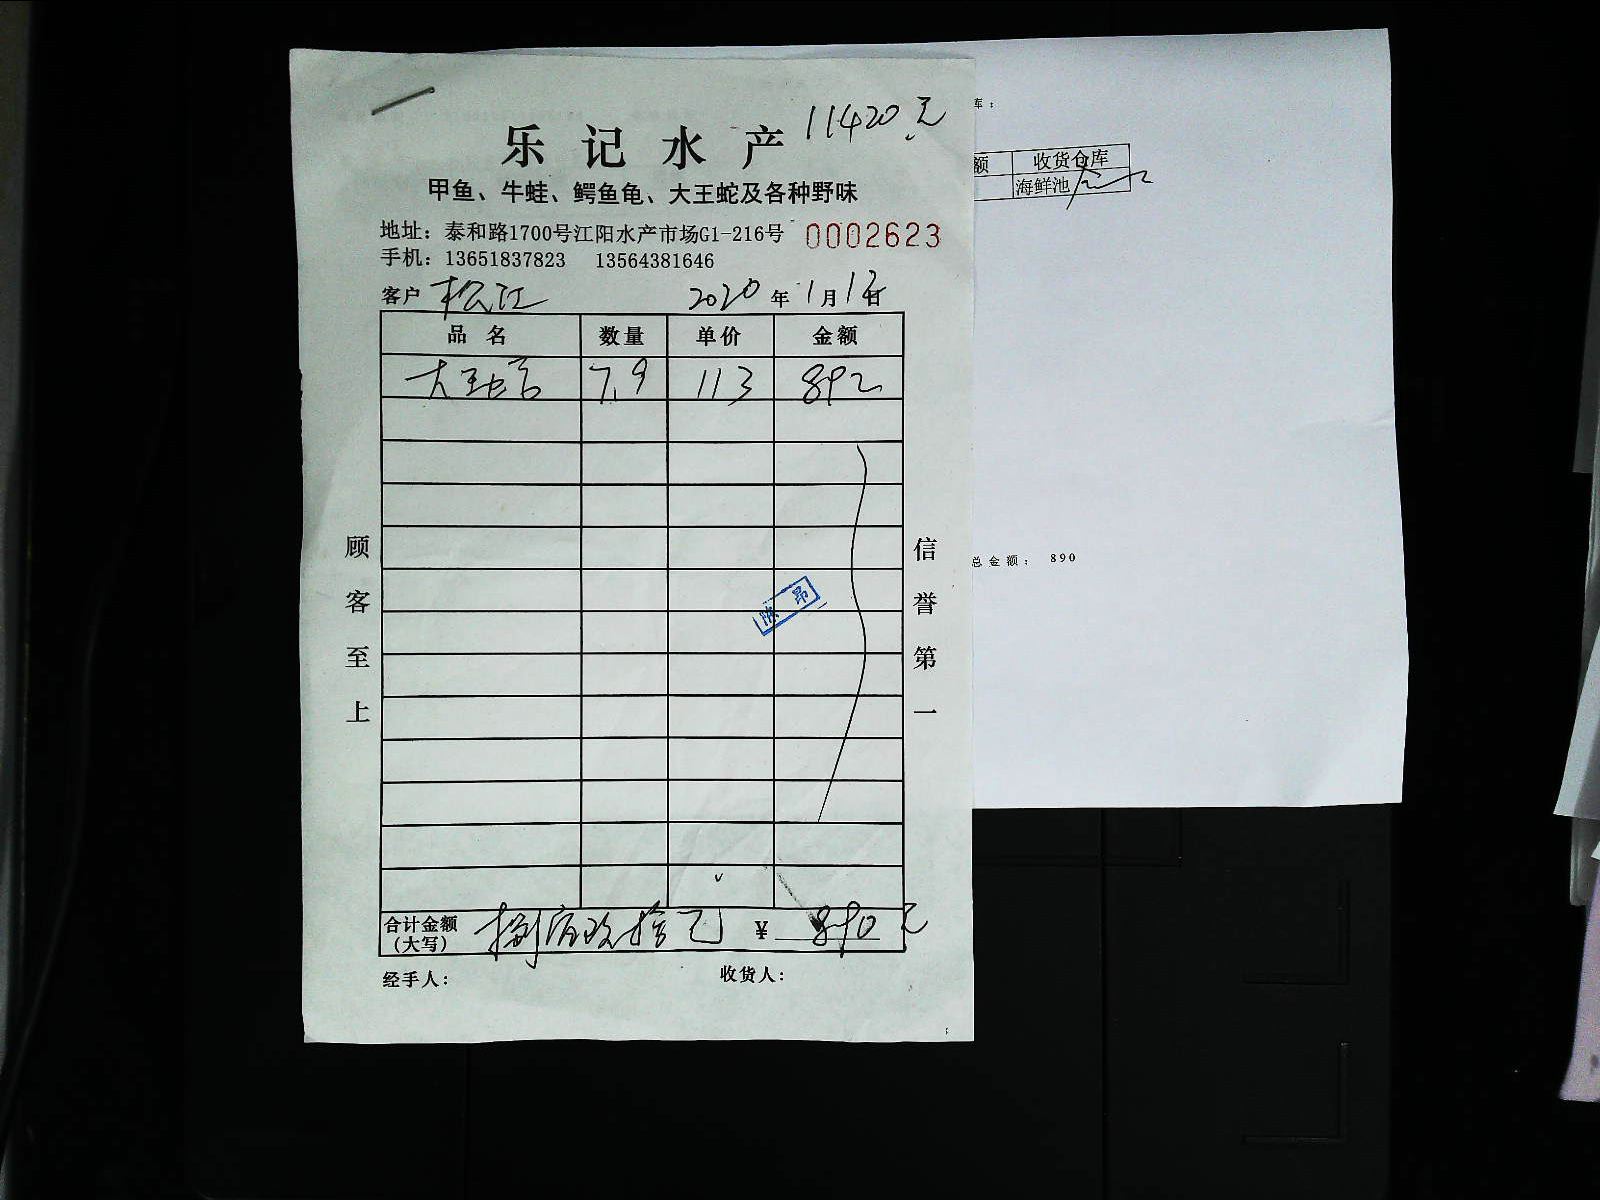 11420元
乐记水产
甲鱼、牛蛙、鳄鱼龟、大王蛇及各种野味
地址：泰和路1700号江阳水产市场G1-216号 0002623
手机：13651837823 13564381646
客户 松江 2020年1月12日
品名 数量 单价 金额
大王蛇 7.9 113 892
顾客至上
信誉第一
昂
合计金额（大写） 捌佰玖拾元 ￥890元
经手人： 收货人：
库：
额 收货仓库
海鲜池
总金额： 890